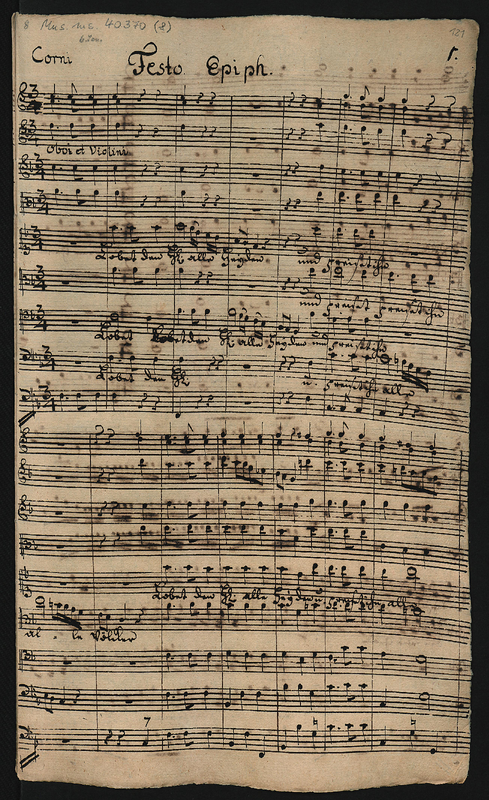 8 Mus. ms. 40370 (8)
121
Corni
Festo Epiph.
1.
Oboi et Violini
Lobet den H alle Heyden und preiset ihn
und preiset preiset ihn
Lobet Lobet den H alle Heyden und preiset ihn
Lobet den H u. preiset ihn alle
Lobet den H alle Heyden u preiset ihn alle
al - le Völcker
7